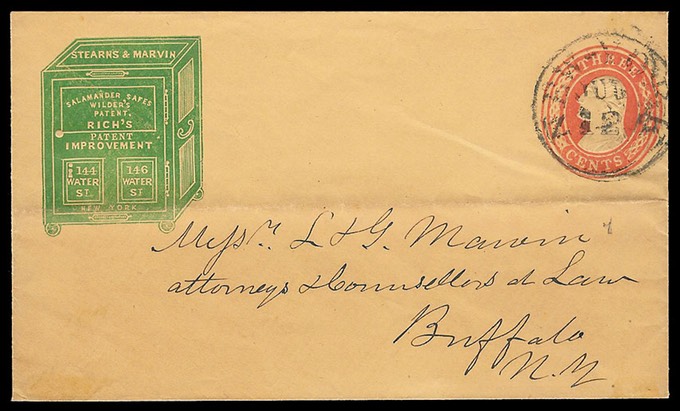 STEARNS & MARVIN
SALAMANDER SAFES
WILDER'S
PATENT,
RICH'S
PATENT
IMPROVEMENT
144
WATER
ST
146
WATER
ST
NEW YORK
THREE
CENTS
NEW-YORK
JUL
12
Messrs. L & G. Marvin
attorneys & Counsellors at Law
Buffalo
N.Y